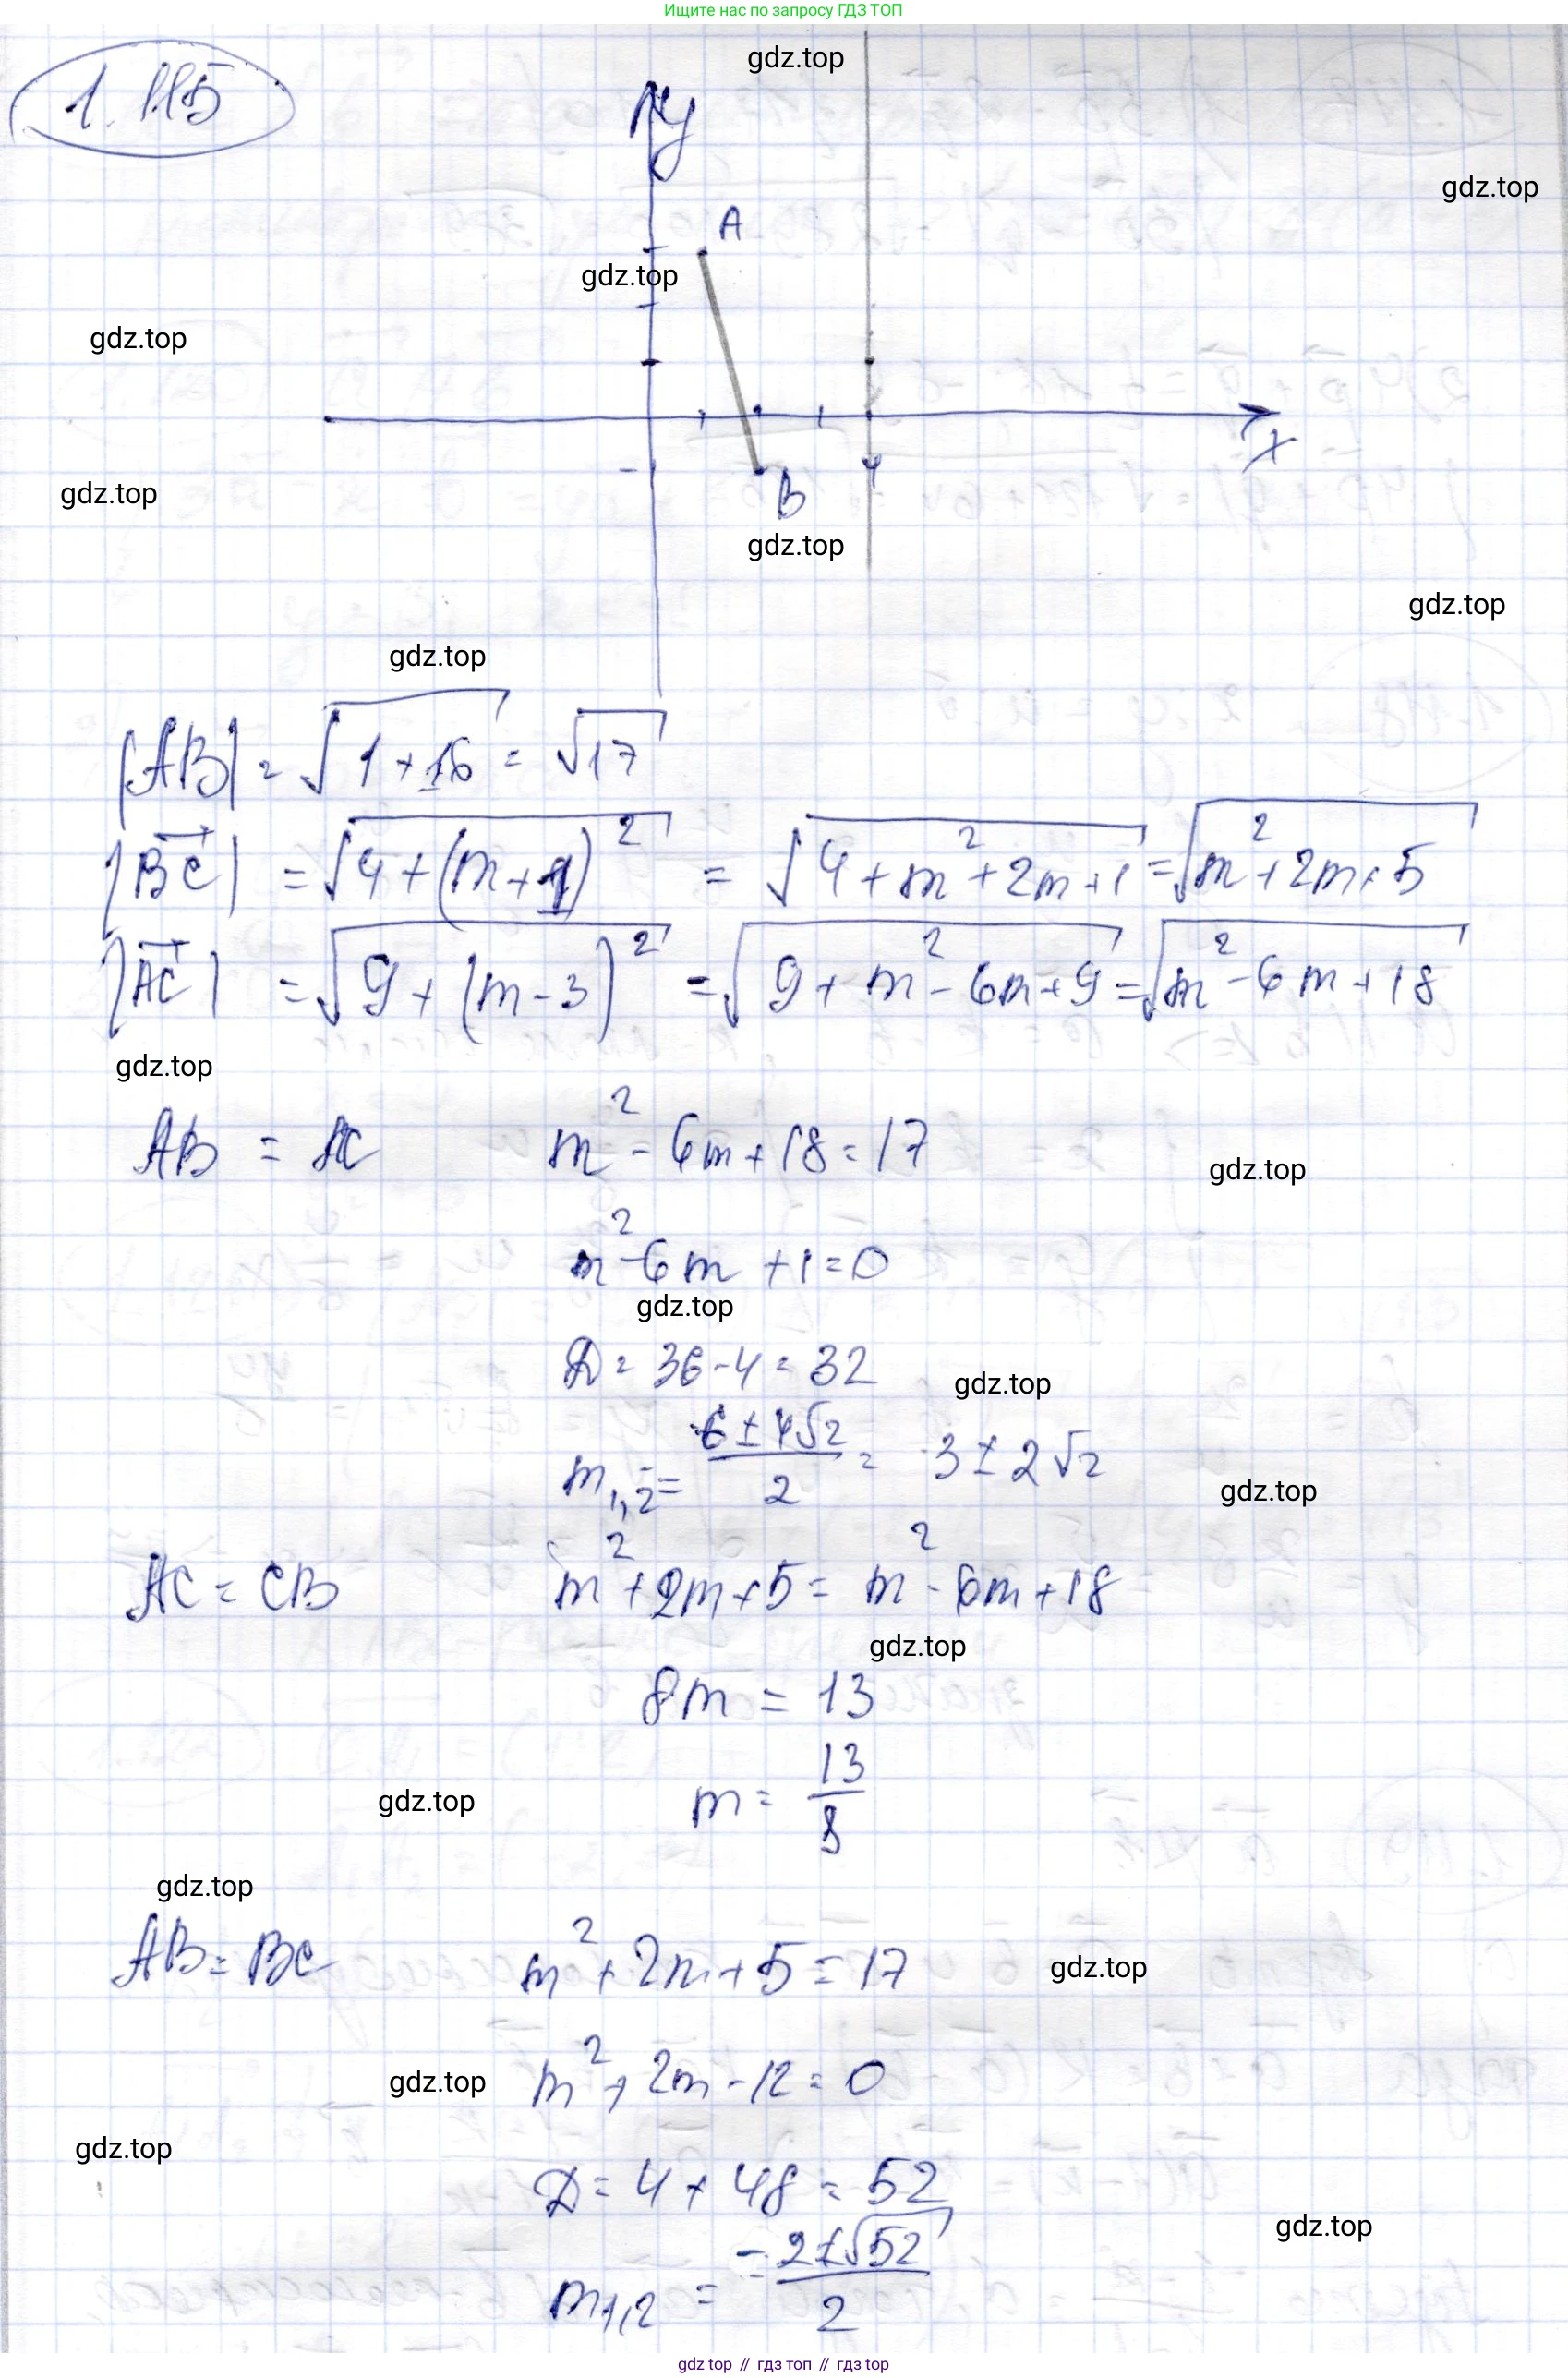 Ищите нас по запросу ГДЗ ТОП
gdz.top
1.115
y
gdz.top
A
gdz.top
gdz.top
x
gdz.top
4
B
gdz.top
gdz.top
gdz.top
|AB| = √(1+16) = √17
|BC| = √(4+(m+1)²) = √(4+m²+2m+1) = √(m²+2m+5)
|AC| = √(9+(m-3)²) = √(9+m²-6m+9) = √(m²-6m+18)
gdz.top
AB = AC m²-6m+18=17
gdz.top
m²-6m+1=0
gdz.top
D=36-4=32
gdz.top
m₁,₂ = (6±4√2)/2 = 3±2√2
gdz.top
AC = CB m²+2m+5=m²-6m+18
gdz.top
8m = 13
m = 13/8
gdz.top
gdz.top
AB = BC m²+2m+5=17
gdz.top
m²+2m-12=0
gdz.top
gdz.top
D=4+48=52
gdz.top
m₁,₂ = (-2±√52)/2
gdz top // гдз топ // гдз top